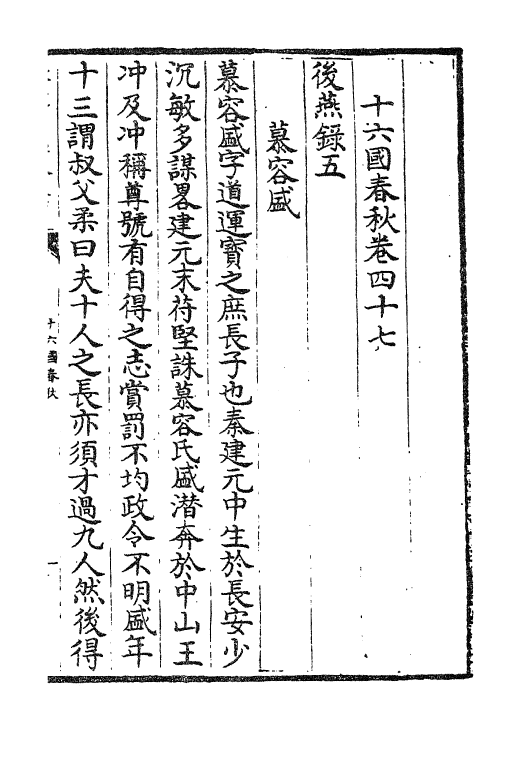 十六國春秋卷四十七
後燕錄五
慕容盛
慕容盛字道運寶之庶長子也秦建元中生於長安少
沉敏多謀畧建元末苻堅誅慕容氏盛潜奔於中山王
冲及冲稱尊號有自得之志賞罰不均政令不明盛年
十三謂叔父柔曰夫十人之長亦須才過九人然後得
十六國春秋
一